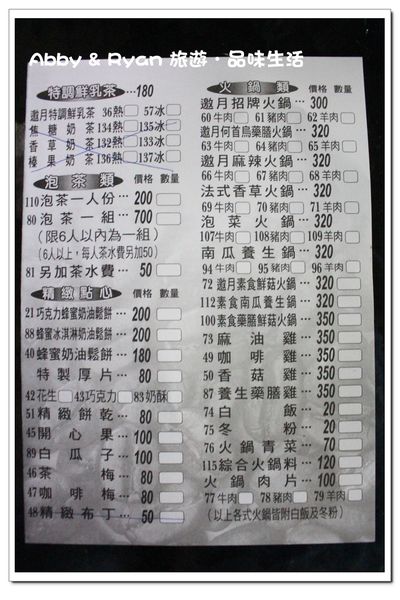 Abby & Ryan 旅遊‧品味生活
特調鮮乳茶…180
邀月特調鮮乳茶 36熱 57冰
焦糖奶茶 134熱 135冰
香草奶茶 132熱 133冰
榛果奶茶 136熱 137冰
泡茶類 價格 數量
110 泡茶一人份… 200
80 泡茶一組… 700
(限6人以內為一組)
(6人以上,每人茶水費另加50)
81 另加茶水費… 50
精緻點心 價格 數量
21 巧克力蜂蜜奶油鬆餅… 200
88 蜂蜜冰淇淋奶油鬆餅… 200
40 蜂蜜奶油鬆餅… 180
特製厚片… 80
42 花生 43 巧克力 83 奶酥
51 精緻餅乾… 80
45 開心果… 100
89 白瓜子… 100
46 茶梅… 80
47 咖啡梅… 80
48 精緻布丁… 50
火鍋類 價格 數量
邀月招牌火鍋… 300
60 牛肉 61 豬肉 62 羊肉
邀月何首烏藥膳火鍋… 320
63 牛肉 64 豬肉 65 羊肉
邀月麻辣火鍋… 320
66 牛肉 67 豬肉 68 羊肉
法式香草火鍋… 320
69 牛肉 70 豬肉 71 羊肉
泡菜火鍋… 320
107 牛肉 108 豬肉 109 羊肉
南瓜養生鍋… 320
94 牛肉 95 豬肉 96 羊肉
72 邀月素食鮮菇火鍋… 350
112 素食南瓜養生鍋… 350
100 素食藥膳鮮菇火鍋… 350
73 麻油雞… 350
49 咖啡雞… 350
50 香菇雞… 350
87 養生藥膳雞… 350
74 白飯… 20
75 冬粉… 20
76 火鍋青菜… 70
115 綜合火鍋料… 120
火鍋肉片… 100
77 牛肉 78 豬肉 79 羊肉
(以上各式火鍋皆附白飯及冬粉)